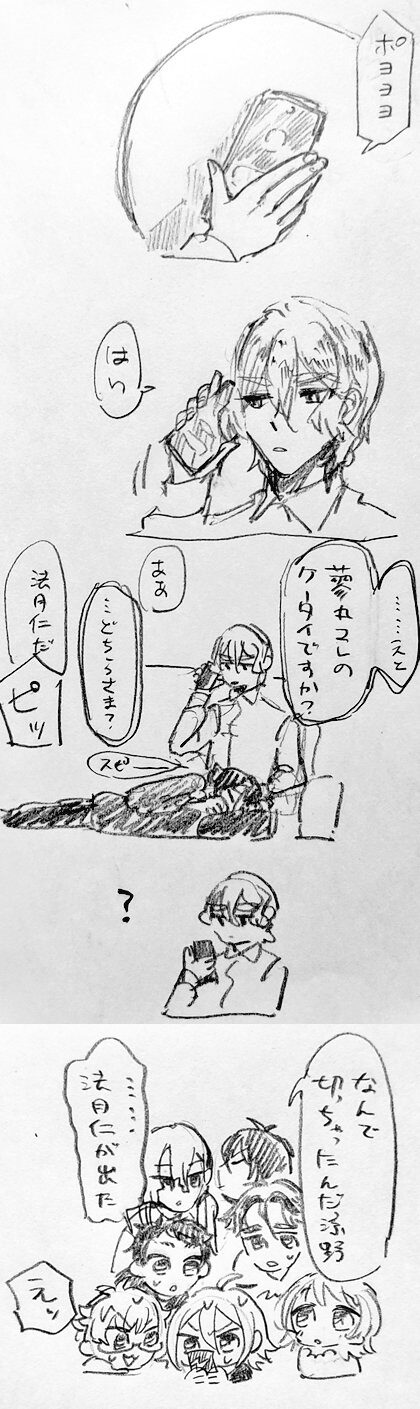 ポヨヨヨ
はい
……えと
蓼丸コレの
ケータイですか?
ああ
…どちらさま?
法月仁だ
ピッ
スピー
?
なんで
切っちゃったんだ涼野
……
法月仁が出た
えッ